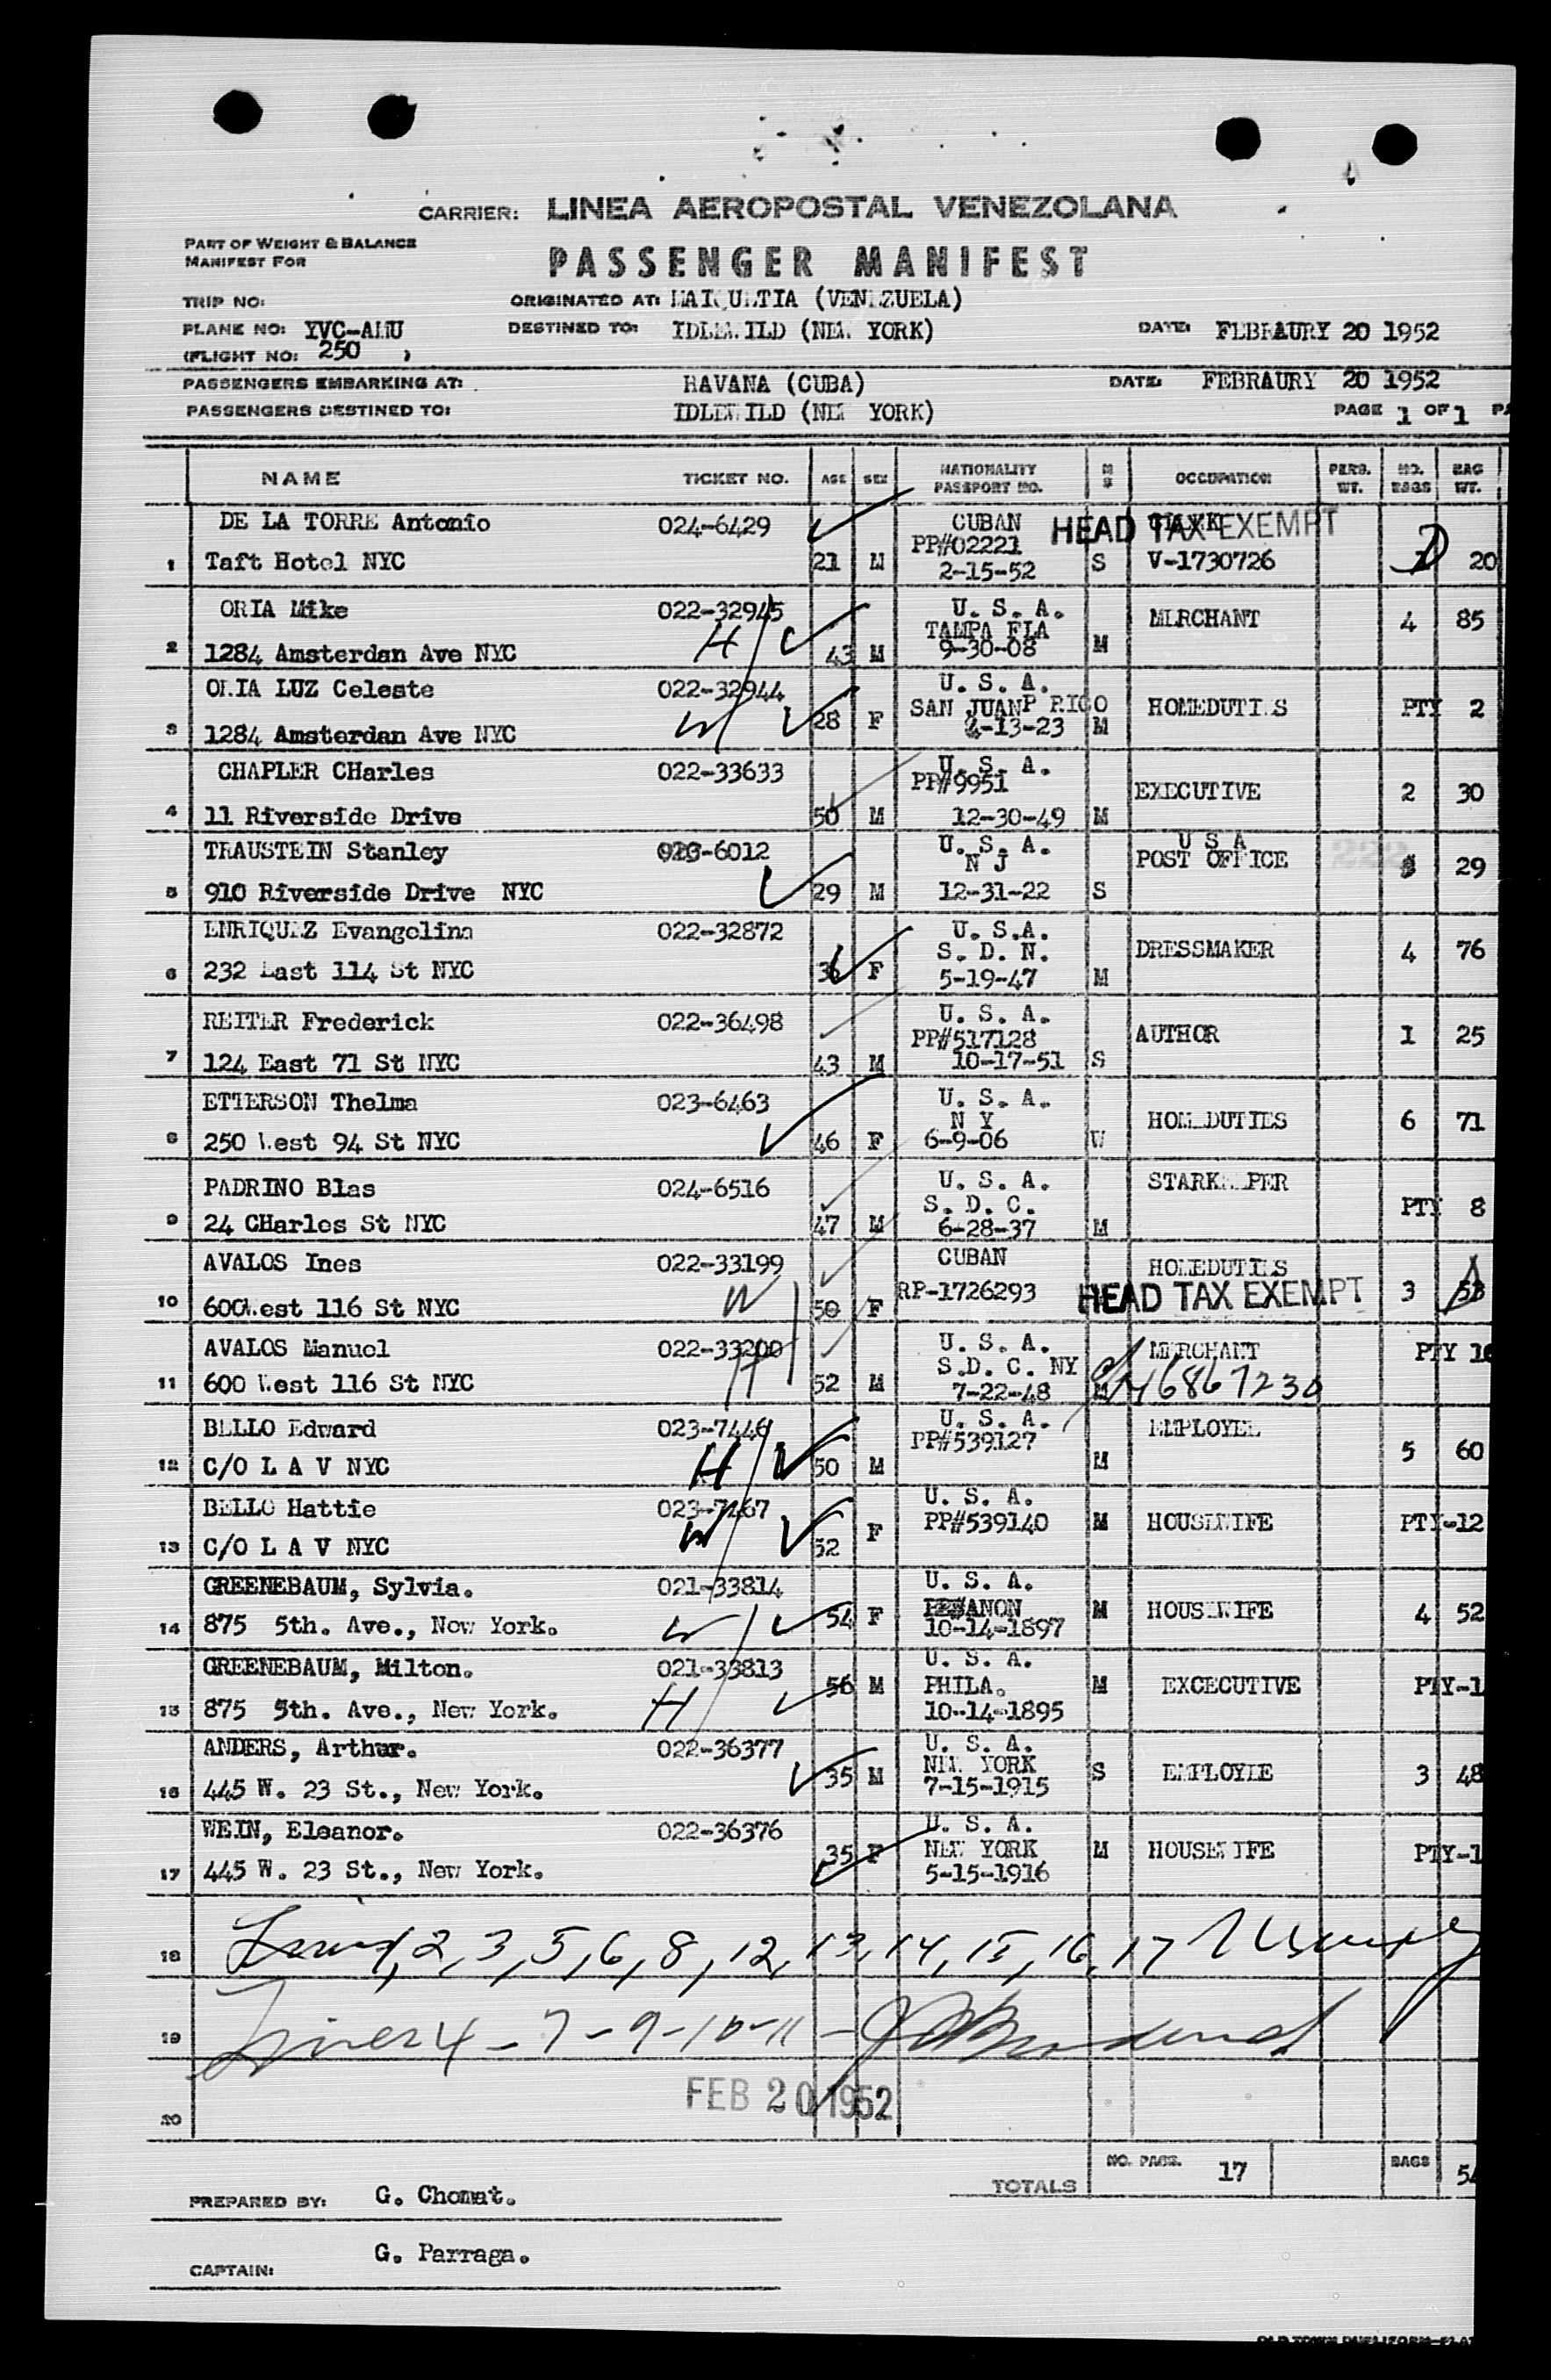 CARRIER: LINEA AEROPOSTAL VENEZOLANA
PART OF WEIGHT & BALANCE
MANIFEST FOR
PASSENGER MANIFEST
TRIP NO:
ORIGINATED AT: MAIQUETIA (VENEZUELA)
PLANE NO: YVC-AMU
DESTINED TO: IDLEWILD (NEW YORK)
DATE: FEBRAURY 20 1952
(FLIGHT NO: 250 )
PASSENGERS EMBARKING AT: HAVANA (CUBA) DATE: FEBRAURY 20 1952
PASSENGERS DESTINED TO: IDLEWILD (NEW YORK) PAGE 1 OF 1
NAME TICKET NO. AGE SEX NATIONALITY PASSPORT NO. M S OCCUPATION PERS. WT. NO. BAGS BAG WT.
DE LA TORRE Antonio 024-6429 CUBAN HEAD TAX EXEMPT
PP#02221
1 Taft Hotel NYC 21 M 2-15-52 S V-1730726 20
ORIA Mike 022-32945 U. S. A. MERCHANT 4 85
H TAMPA FLA
2 1284 Amsterdan Ave NYC 43 M 9-30-08 M
ORIA LUZ Celeste 022-32944 U. S. A.
W SAN JUAN P RICO HOMEDUTIES PTY 2
3 1284 Amsterdan Ave NYC 28 F 4-13-23 M
CHAPLER CHarles 022-33633 U. S. A.
PP#9951 EXECUTIVE 2 30
4 11 Riverside Drive 50 M 12-30-49 M
TRAUSTEIN Stanley 023-6012 U. S. A. U S A
N J POST OFFICE 29
5 910 Riverside Drive NYC 29 M 12-31-22 S
ENRIQUEZ Evangelina 022-32872 U. S.A.
S. D. N. DRESSMAKER 4 76
6 232 East 114 St NYC 36 F 5-19-47 M
REITER Frederick 022-36498 U. S. A.
PP#517128 AUTHOR 1 25
7 124 East 71 St NYC 43 M 10-17-51 S
ETTERSON Thelma 023-6463 U. S. A.
N Y HOMEDUTIES 6 71
8 250 West 94 St NYC 46 F 6-9-06 W
PADRINO Blas 024-6516 U. S. A. STARKEEPER
S. D. C. PTY 8
9 24 CHarles St NYC 47 M 6-28-37 M
AVALOS Ines 022-33199 CUBAN HOMEDUTIES
W RP-1726293 HEAD TAX EXEMPT 3 53
10 600West 116 St NYC 50 F
AVALOS Manuel 022-33200 U. S. A. MERCHANT PTY 16
H S.D. C. NY 6867230
11 600 West 116 St NYC 52 M 7-22-48 M
BELLO Edward 023-7446 U. S. A. EMPLOYEE
H PP#539127 5 60
12 C/O L A V NYC 50 M M
BELLO Hattie 023-7467 U. S. A.
W PP#539140 M HOUSEWIFE PTY-12
13 C/O L A V NYC 52 F
GREENEBAUM, Sylvia. 021-33814 U. S. A.
LEBANON M HOUSEWIFE 4 52
14 875 5th. Ave., New York. W 54 F 10-14-1897
GREENEBAUM, Milton. 021-33813 U. S. A.
56 M PHILA. M EXCECUTIVE PTY-1
15 875 5th. Ave., New York. H 10-14-1895
ANDERS, Arthur. 022-36377 U. S. A.
35 M NEW YORK S EMPLOYEE 3 48
16 445 W. 23 St., New York. 7-15-1915
WEIN, Eleanor. 022-36376 U. S. A.
35 F NEW YORK M HOUSEWIFE PTY-1
17 445 W. 23 St., New York. 5-15-1916
18 1, 2, 3, 5, 6, 8, 12, 13, 14, 15, 16, 17
19 Lines 4 - 7 - 9 - 10 - 11 -
FEB 20 1952
20
TOTALS NO. PASS. 17 BAGS
PREPARED BY: G. Chomat.
CAPTAIN: G. Parraga.